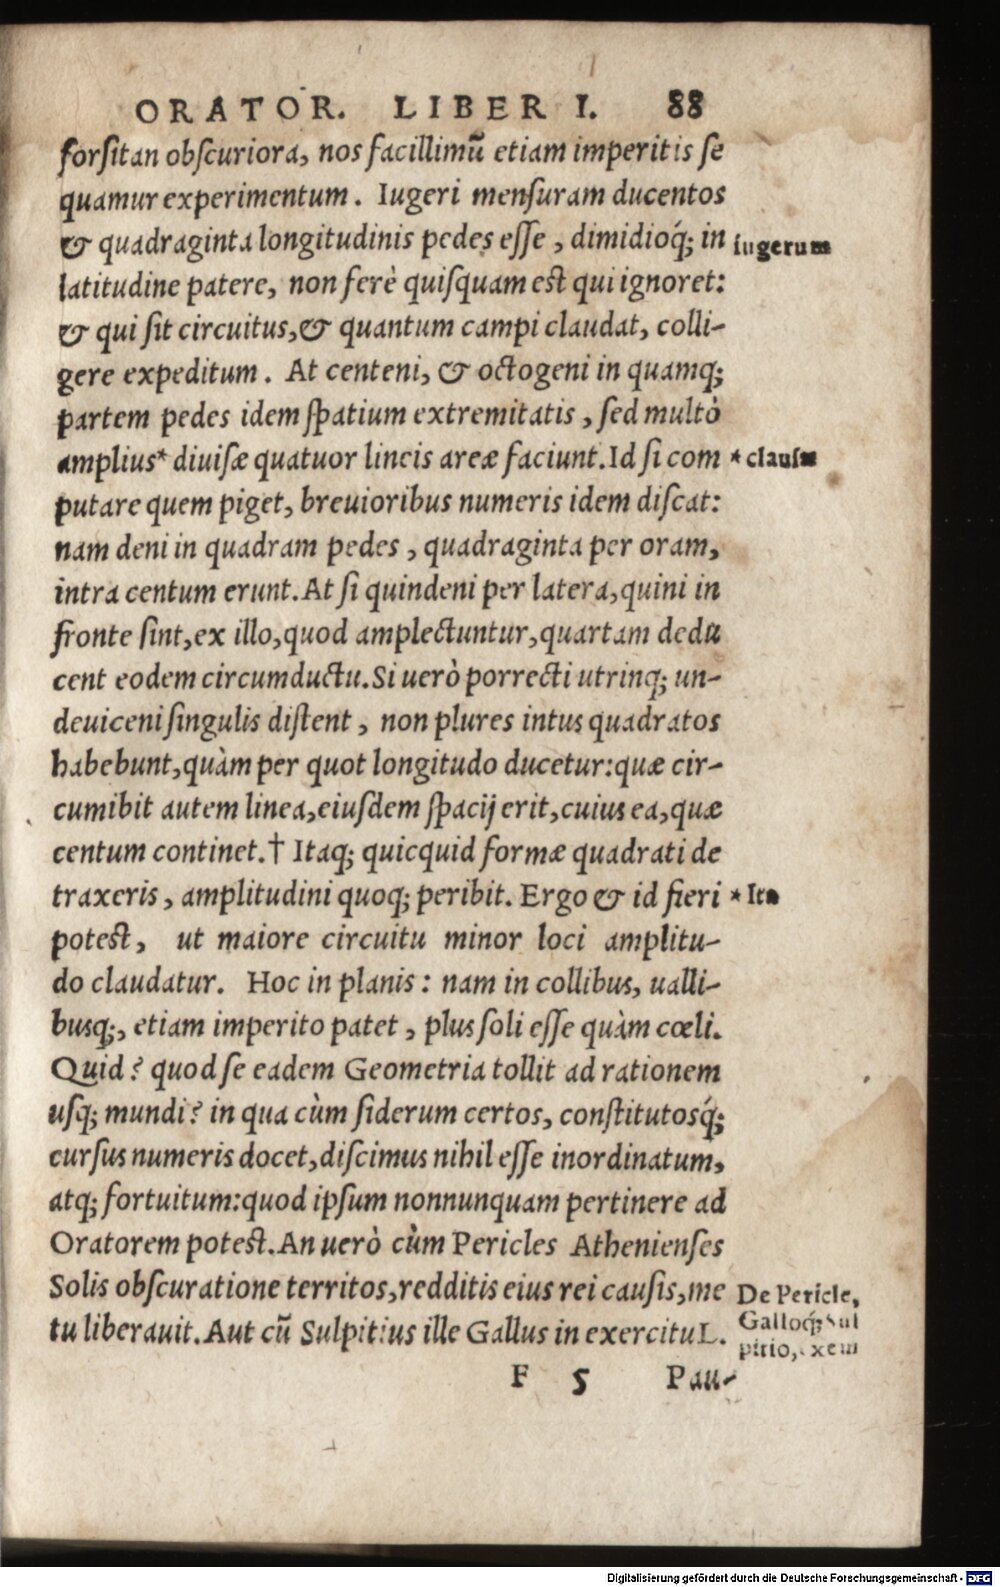 ORATOR. LIBER I. 88
forsitan obscuriora, nos facillimũ etiam imperitis se
quamur experimentum. Iugeri mensuram ducentos
& quadraginta longitudinis pedes esse, dimidioq́; in
iugerum
latitudine patere, non ferè quisquam est qui ignoret:
& qui sit circuitus, & quantum campi claudat, colli-
gere expeditum. At centeni, & octogeni in quamq;
partem pedes idem spatium extremitatis, sed multò
amplius* diuisæ quatuor lineis areæ faciunt. Id si com
* clausæ
putare quem piget, breuioribus numeris idem discat:
nam deni in quadram pedes, quadraginta per oram,
intra centum erunt. At si quindeni per latera, quini in
fronte sint, ex illo, quod amplectuntur, quartam dedu
cent eodem circumductu. Si uerò porrecti utrinq; un-
deuiceni singulis distent, non plures intus quadratos
habebunt, quàm per quot longitudo ducetur: quæ cir-
cumibit autem linea, eiusdem spacij erit, cuius ea, quæ
centum continet.† Itaq; quicquid formæ quadrati de
traxeris, amplitudini quoq; peribit. Ergo & id fieri
* Ita
potest, ut maiore circuitu minor loci amplitu-
do claudatur. Hoc in planis: nam in collibus, ualli-
busq;, etiam imperito patet, plus soli esse quàm cœli.
Quid? quod se eadem Geometria tollit ad rationem
usq; mundi? in qua cùm siderum certos, constitutosq́;
cursus numeris docet, discimus nihil esse inordinatum,
atq; fortuitum: quod ipsum nonnunquam pertinere ad
Oratorem potest. An uerò cùm Pericles Athenienses
Solis obscuratione territos, redditis eius rei causis, me
tu liberauit. Aut cũ Sulpitius ille Gallus in exercitu L.
De Pericle,
Galloq́; Sul
pitio, exem
F 5 Pau-
Digitalisierung gefördert durch die Deutsche Forschungsgemeinschaft - DFG